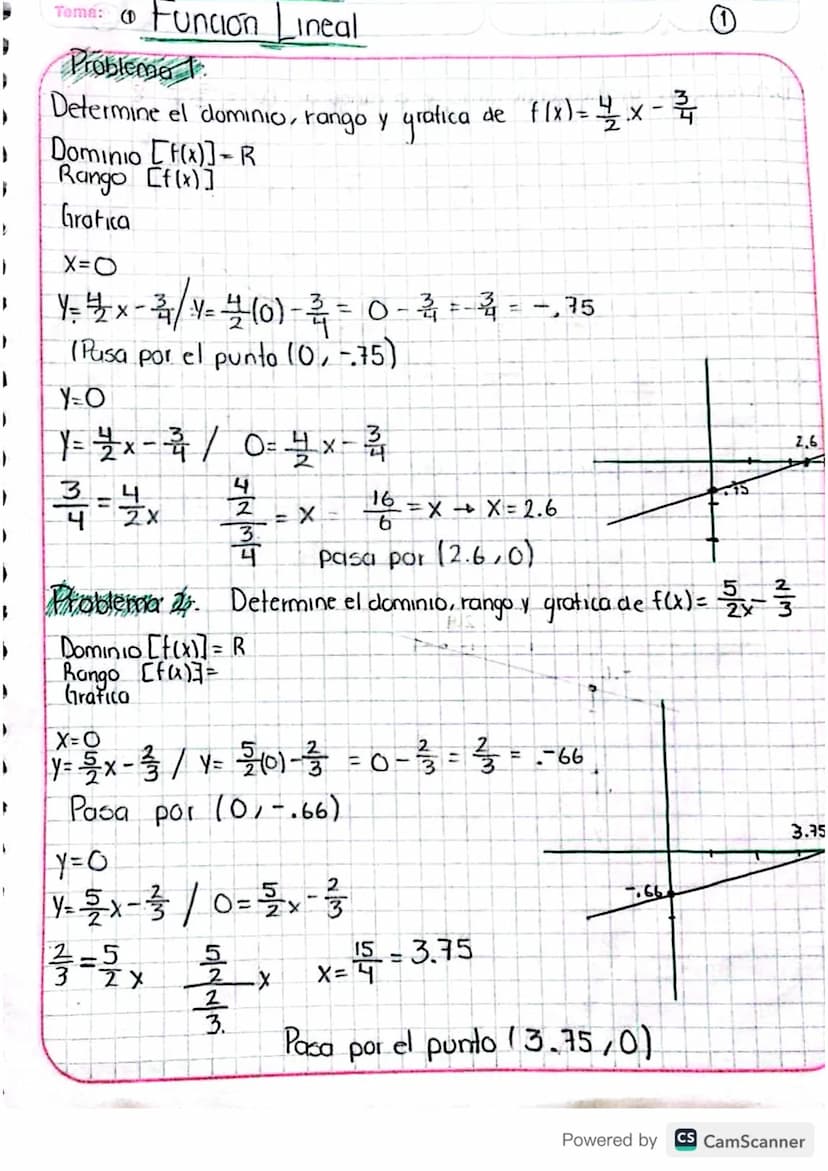 Tema: ① Función Lineal ①
Problema 1.
Determine el dominio, rango y grafica de f(x)= 4/2 x - 3/4
Dominio [f(x)]= R
Rango [f(x)]
Grafica
X=0
Y= 4/2 x - 3/4 / y= 4/2 (0) - 3/4 = 0 - 3/4 = - 3/4 = -.75
(Pasa por el punto (0, -.75)
Y=0
Y= 4/2 x - 3/4 / 0= 4/2 x - 3/4
2.6
-.75
3/4 = 4/2 x   4/2 / 3/4 = x   16/6 = x → x= 2.6
pasa por (2.6,0)
Problema 2. Determine el dominio, rango y grafica de f(x)= 5/2x - 2/3
Dominio [f(x)]= R
Rango [f(x)]=
Grafica
X=0
y= 5/2 x - 2/3 / Y= 5/2 (0) - 2/3 = 0 - 2/3 = 2/3 = .-66
Pasa por (0, -.66)
3.75
Y=0
-.66
Y= 5/2 x - 2/3 / 0= 5/2 x - 2/3
2/3 = 5/2 x   5/2 / 2/3. x   x= 15/4 = 3.75
Pasa por el punto (3.75,0)
Powered by CS CamScanner